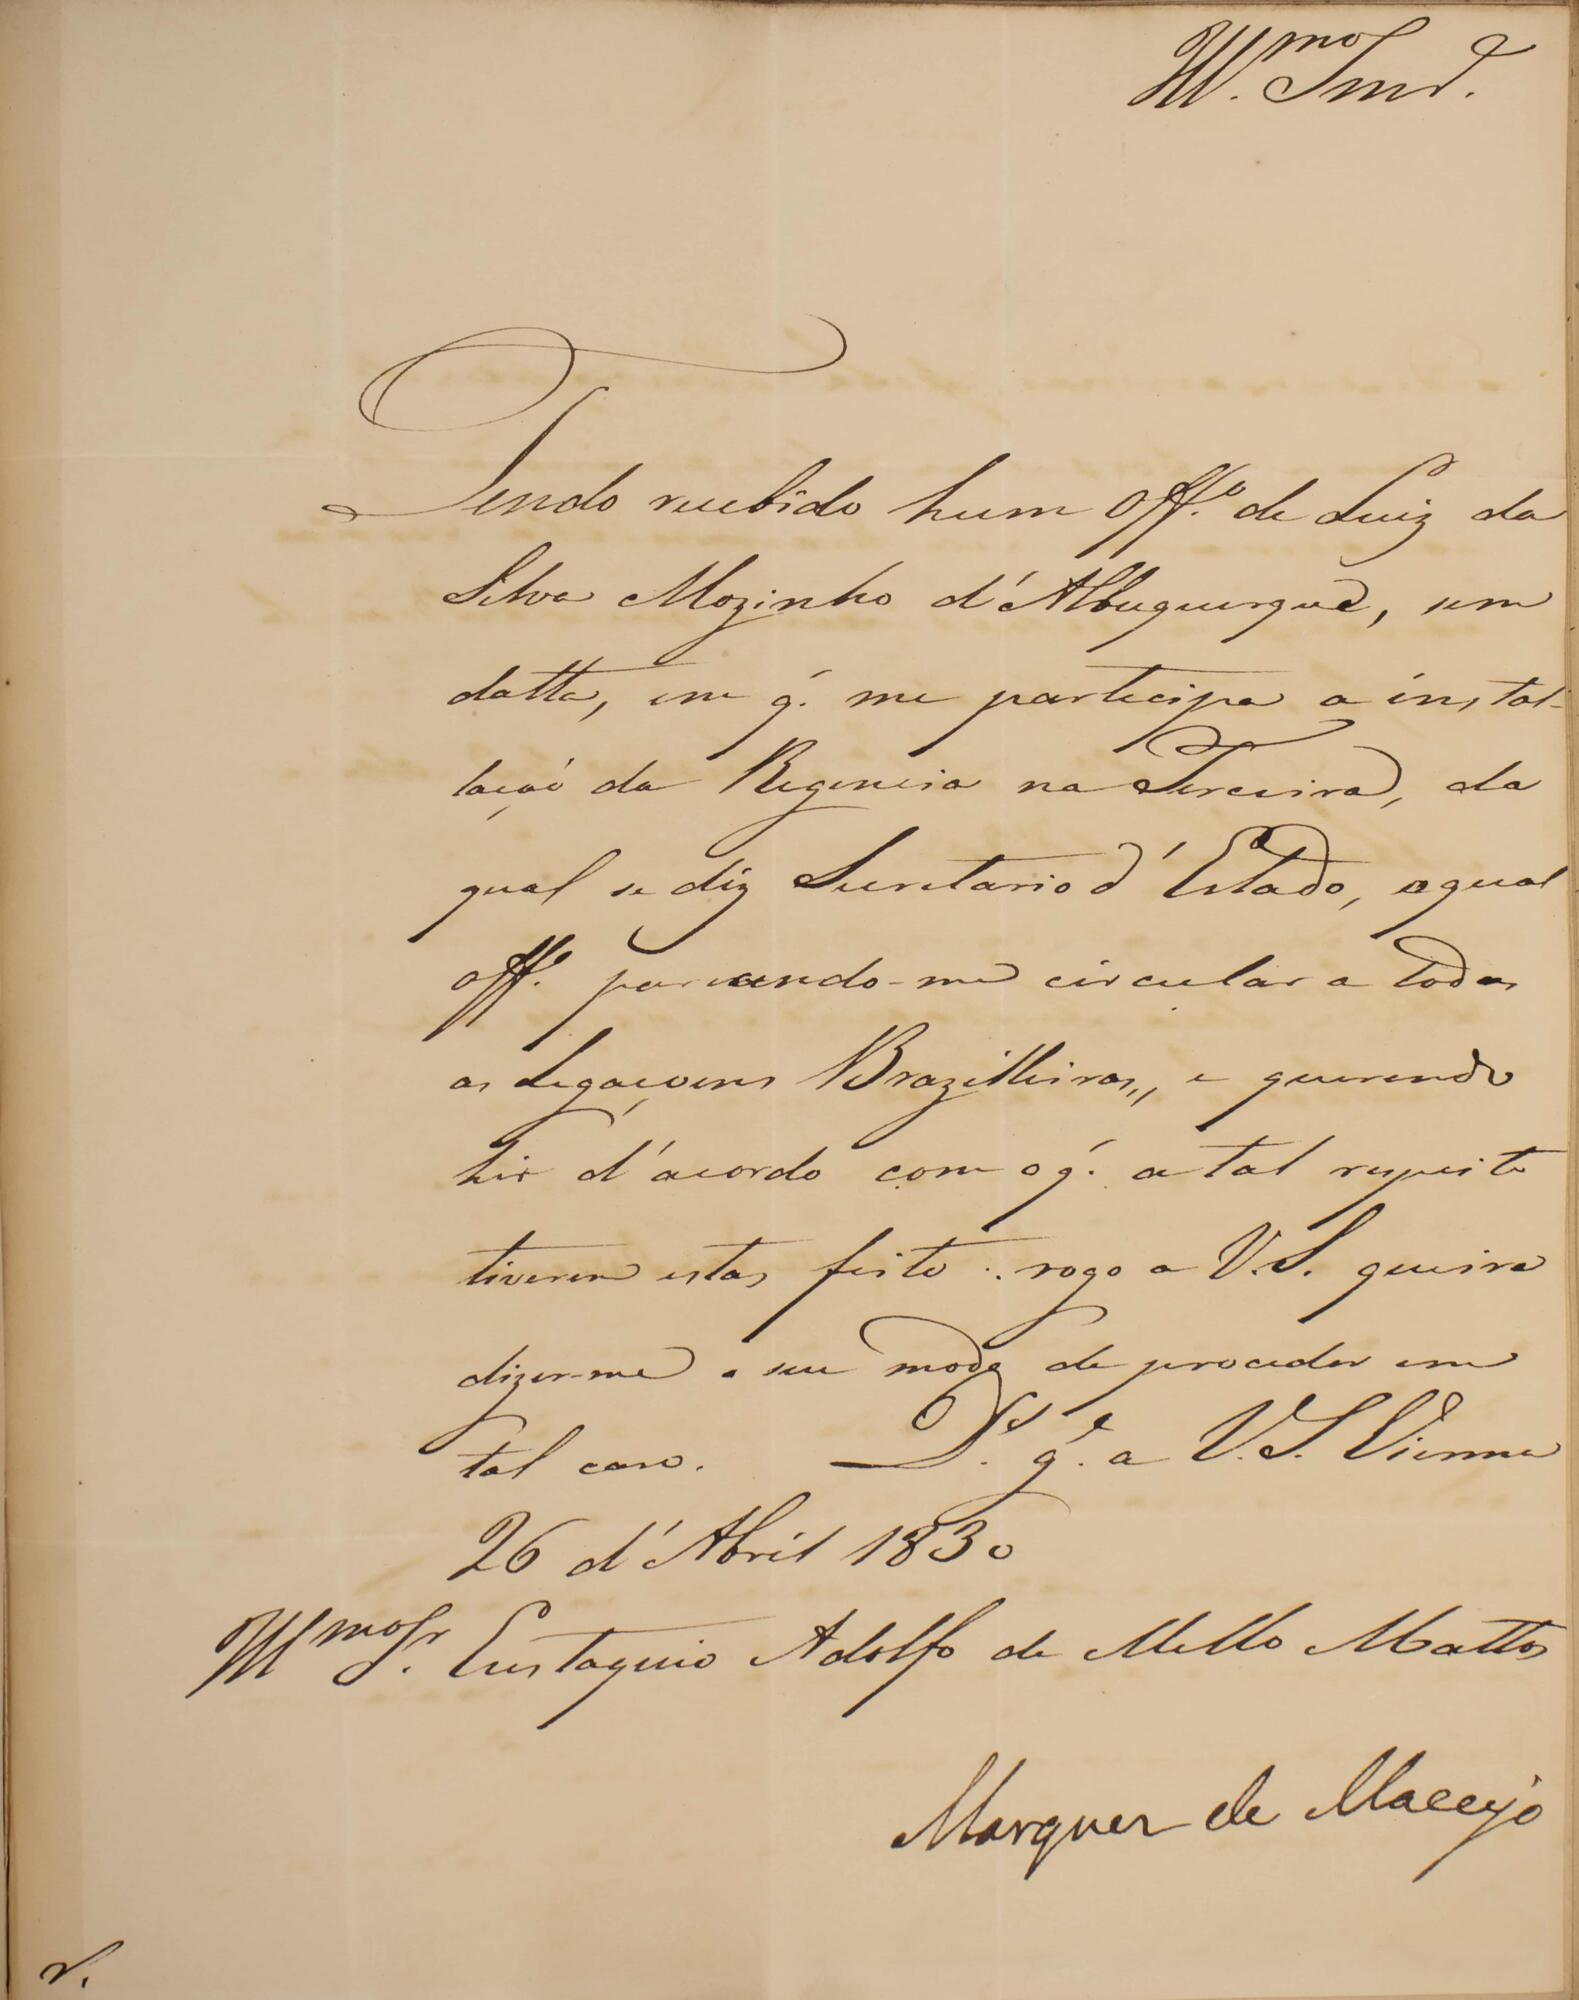 Ill.mo Snr.
Tendo recebido hum Off.o de Luiz da
Silva Mozinho d'Albuquerque, sem
datta, em q. me participa a instal-
lação da Regencia na Terceira, da
qual se diz Secretario d'Estado, o qual
off.o parecendo-me circular a todas
as Legaçoens Brazilleiras, e querendo
hir d'acordo com o q. a tal respeito
tiverem estas feito: rogo a V. S. queira
dizer-me o seu modo de proceder em
tal caso. D.s g.e a V. S. Vienna
26 d'Abril 1830
Ill.mo Sr. Eustaquio Adolfo de Mello Mattos
Marquez de Maceyó